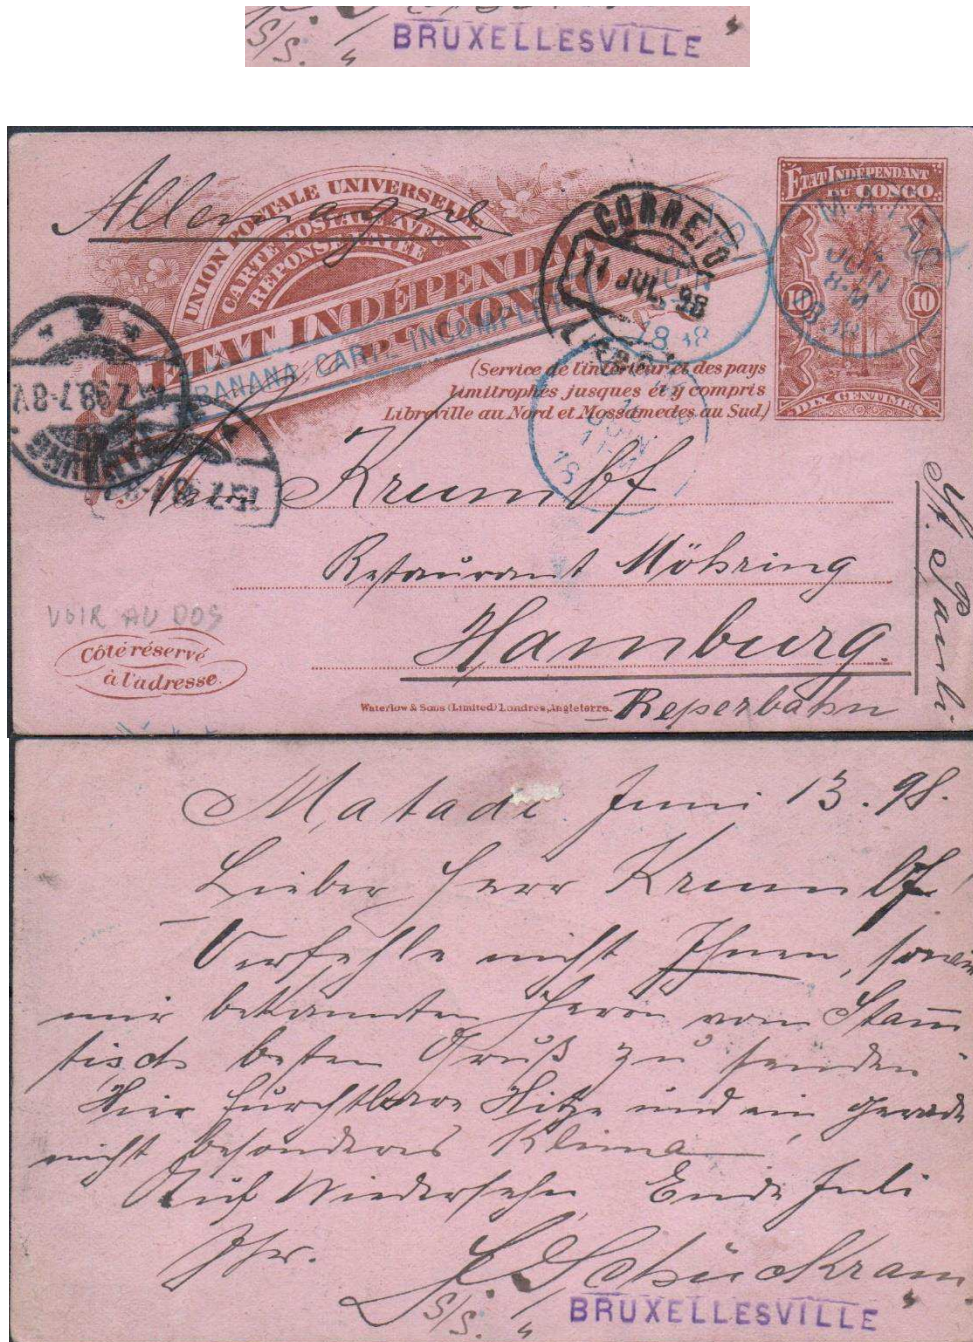 S/S. „ BRUXELLESVILLE „
Allemagne
UNION POSTALE UNIVERSELLE
CARTE POSTALE AVEC
RÉPONSE PAYÉE
ÉTAT INDÉPENDANT
DU CONGO
ÉTAT INDÉPENDANT
DU CONGO
10 10
DIX CENTIMES
MATADI
JUIN
8-M
1898
CORREIO
11 JUL. 98
JUIN
1898
BANANA CARTE INCOMPLETE
(Service de l'intérieur et des pays
limitrophes jusques et y compris
Libreville au Nord et Mossamedes au Sud.)
JUIN
18
7.98.7-8V
HAMBURG
Herrn Krumbf
Restaurant Möhring
Hamburg.
Reperbahn
St. Pauli
VOIR AU DOS
Côté réservé
à l'adresse.
Waterlow & Sons (Limited) Londres, Angleterre.
Matadi Juni 13. 98.
Lieber Herr Krumbf
Verfehle nicht Ihnen, sowie
mir bekannten Herrn vom Stamm
tisch besten Gruß zu senden
Hier furchtbare Hitze und ein gerade
nicht besonderes Klima
Auf Wiedersehn Ende Juli
Ihr.
S/S. „ BRUXELLESVILLE „